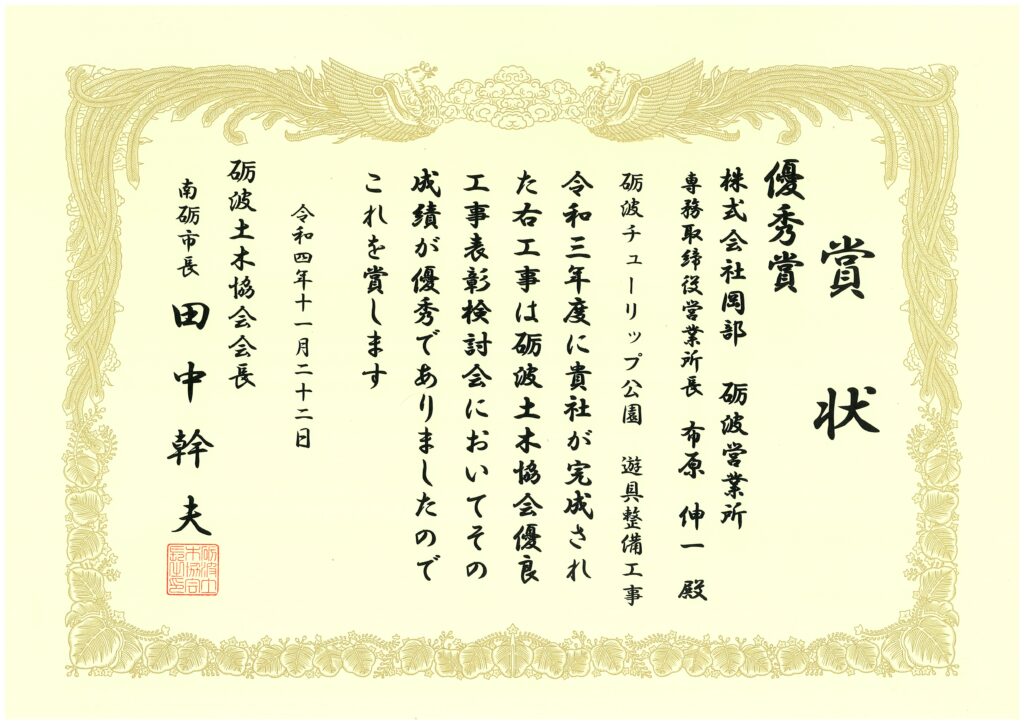 賞状
優秀賞
株式会社岡部 砺波営業所
専務取締役営業所長 布原 伸一 殿
砺波チューリップ公園 遊具整備工事
令和三年度に貴社が完成され
た右工事は砺波土木協会優良
工事表彰検討会においてその
成績が優秀でありましたので
これを賞します
令和四年十一月二十二日
砺波土木協会会長
南砺市長 田中幹夫